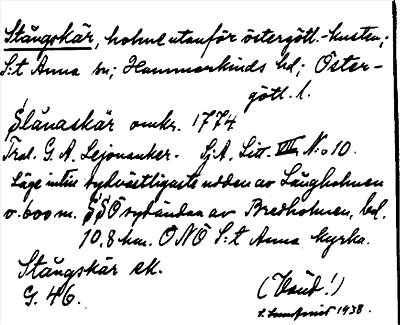 Stångskär, holme utanför östergötl.-kusten;
S:t Anna sn; Hammarkinds hd; Öster-
götl. l.
Slånaskär omkr. 1774
Trol. G. A. Lejonanker. LjA. Litt. VIII N:o 10.
Läge intill sydvästligaste udden av Långholmen
o. 600 m. SSÖ sydändan av Bredholmen, bel.
10.8 km. ONÖ S:t Anna kyrka.
Stångskär ek.
G. 46.
(Vänd!)
S. Lundqvist 1938.